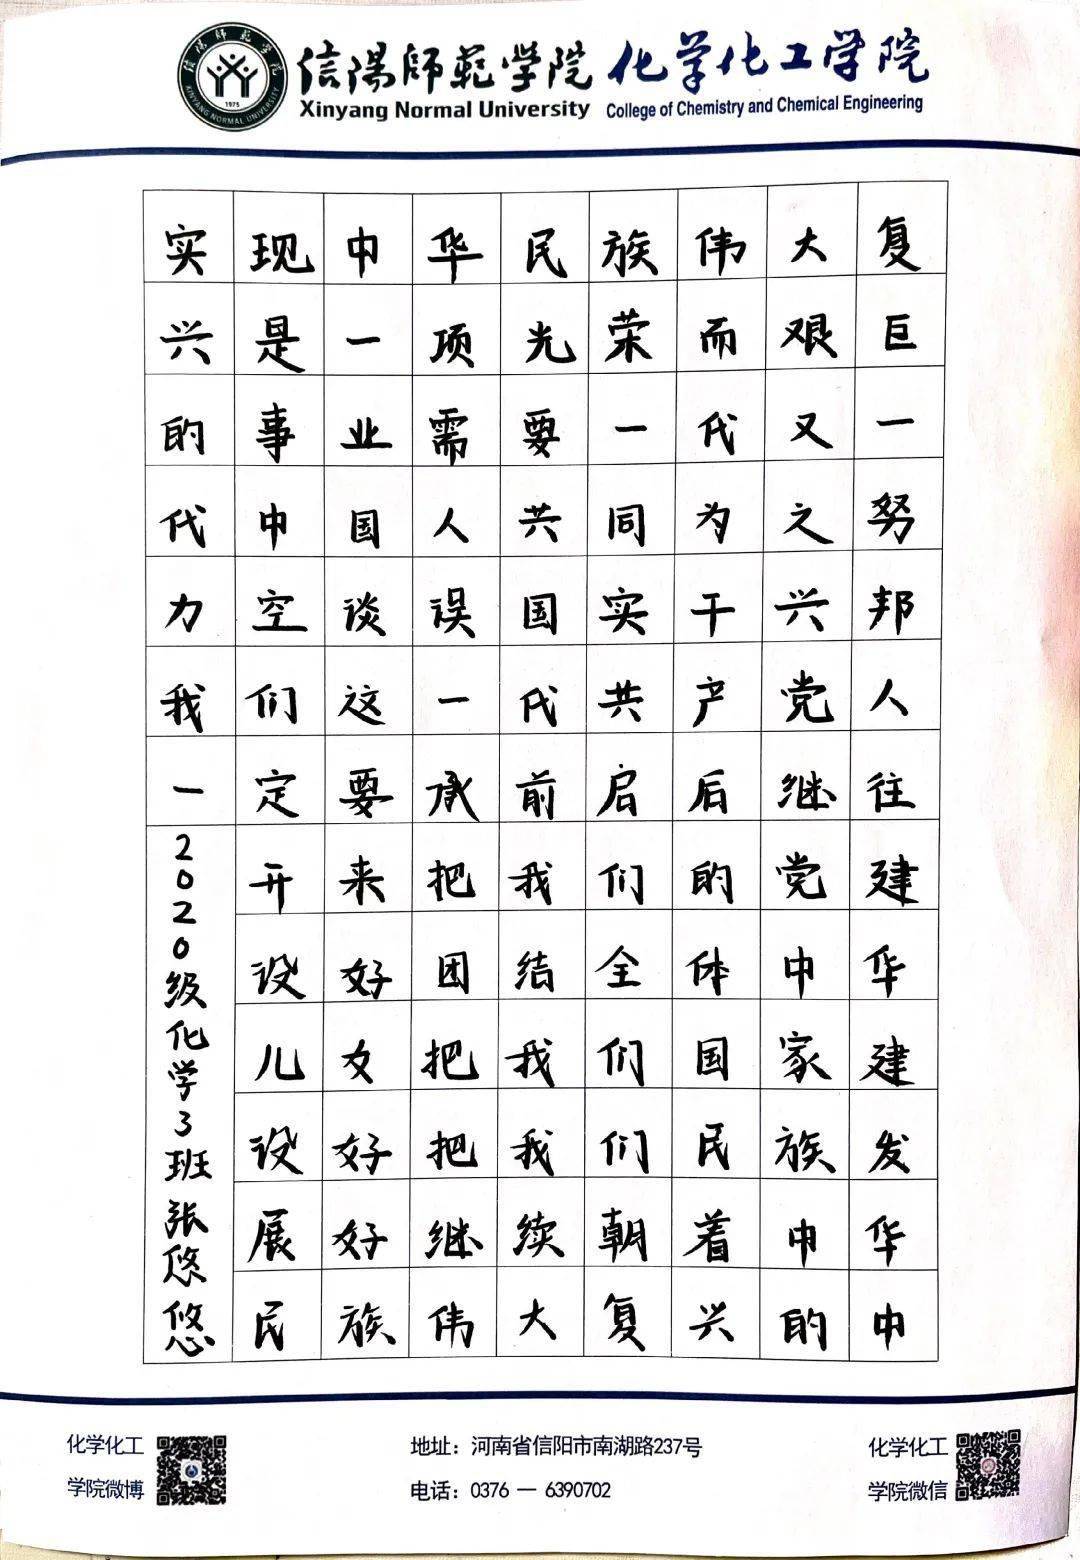 信陽師範學院 化学化工学院
Xinyang Normal University College of Chemistry and Chemical Engineering
信陽師範學院
1975
XINYANG NORMAL UNIVERSITY
实现中华民族伟大复
兴是一项光荣而艰巨
的事业需要一代又一
代中国人共同为之努
力空谈误国实干兴邦
我们这一代共产党人
一定要承前启后继往
开来把我们的党建
设好团结全体中华
儿女把我们国家建
设好把我们民族发
展好继续朝着中华
民族伟大复兴的中
2020级化学3班张悠悠
化学化工
学院微博
地址：河南省信阳市南湖路237号
电话：0376 — 6390702
化学化工
学院微信